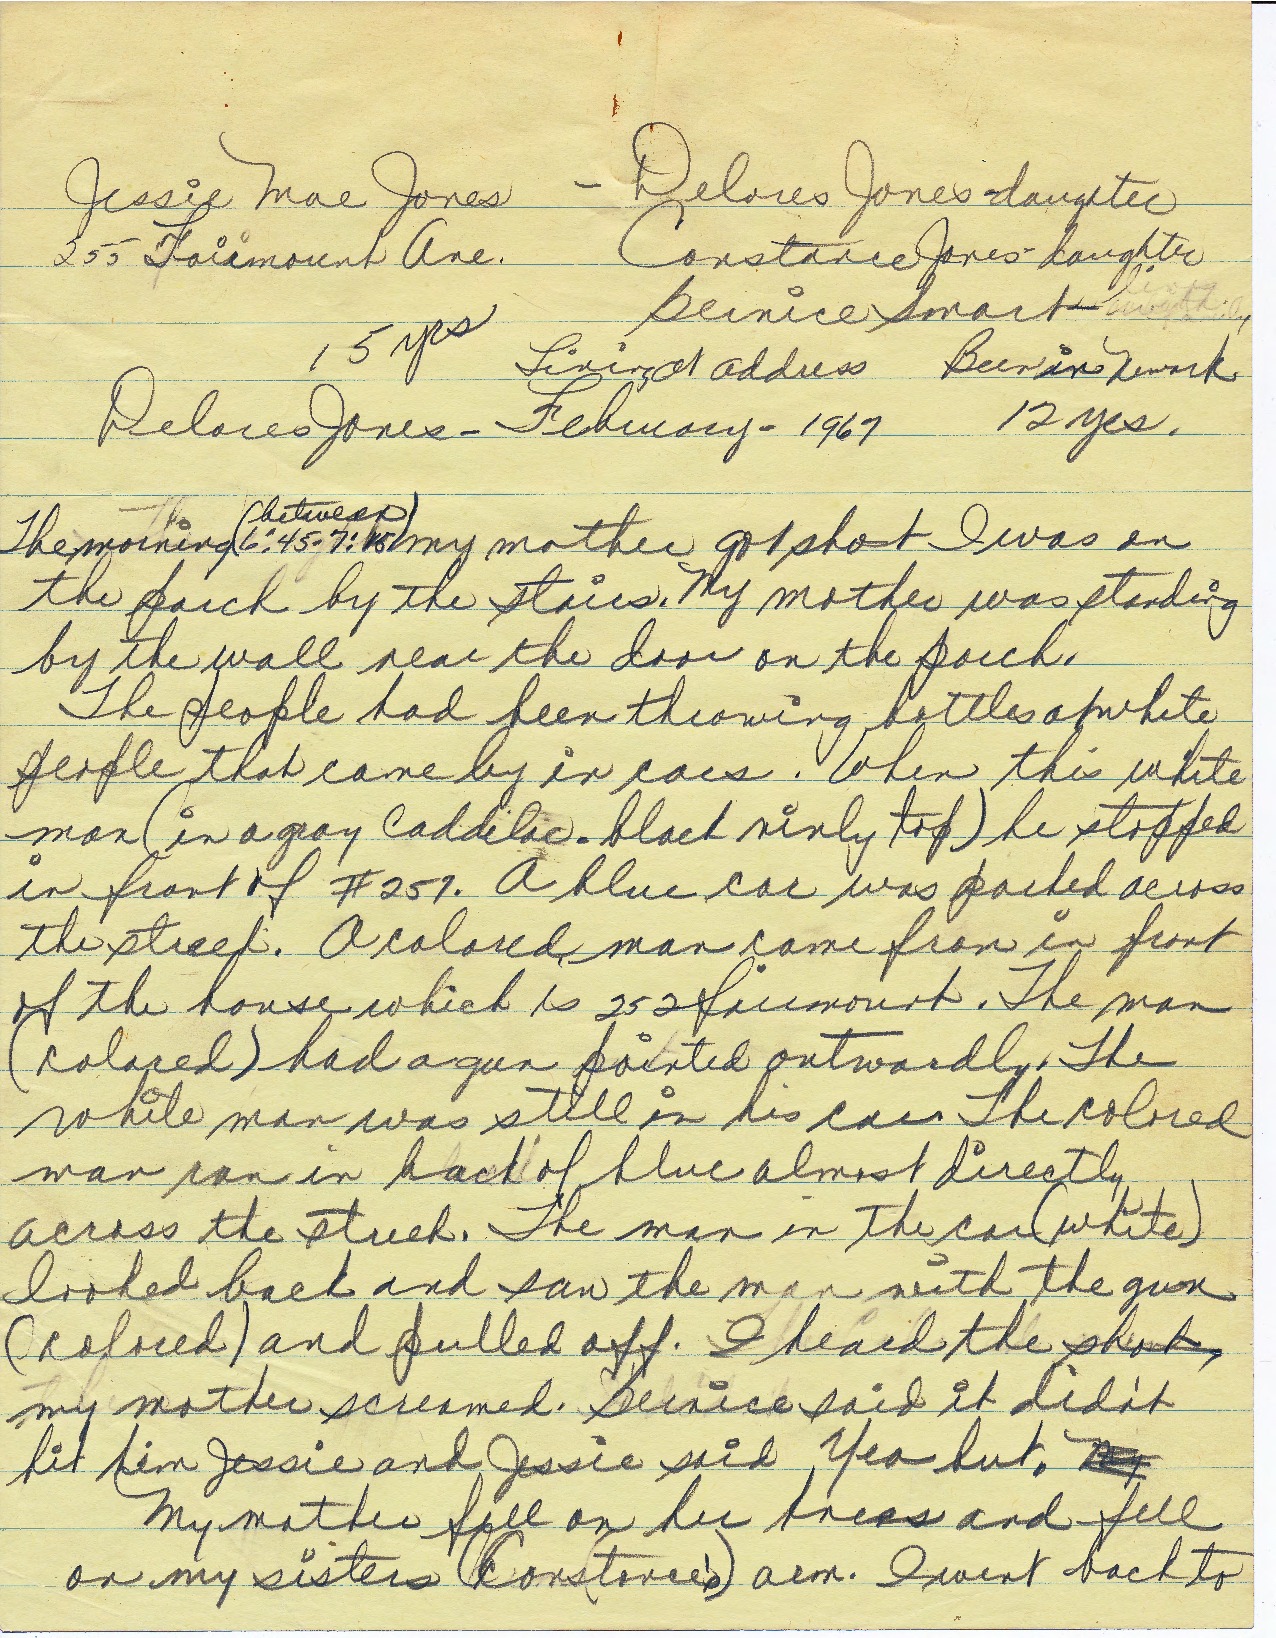 Jessie Mae Jones - Delores Jones - daughter
255 Fairmount Ave. Constance Jones - daughter
Bernice Smart -
15 yrs Living at address Been in Newark
Delores Jones - February - 1967 12 yrs.
(between)
The morning (6:45-7:15) my mother got shot I was on
the porch by the stairs. My mother was standing
by the wall near the door on the porch.
The people had been throwing bottles at white
people that came by in cars. When this white
man (in a gray Caddilac - black vinly top) he stopped
in front of #257. A blue car was parked across
the street. A colored man came from in front
of the house which is 252 Fairmount. The man
(colored) had a gun pointed outwardly. The
white man was still in his car. The colored
man ran in back of blue almost directly
across the street. The man in the car (white)
looked back and saw the man with the gun
(colored) and pulled off. I heard the shot,
my mother screamed. Bernice said it did'nt
hit him Jessie and Jessie said Yea but. My
My mother fell on her knees and fell
on my sisters (Constance's) arm. I went back to